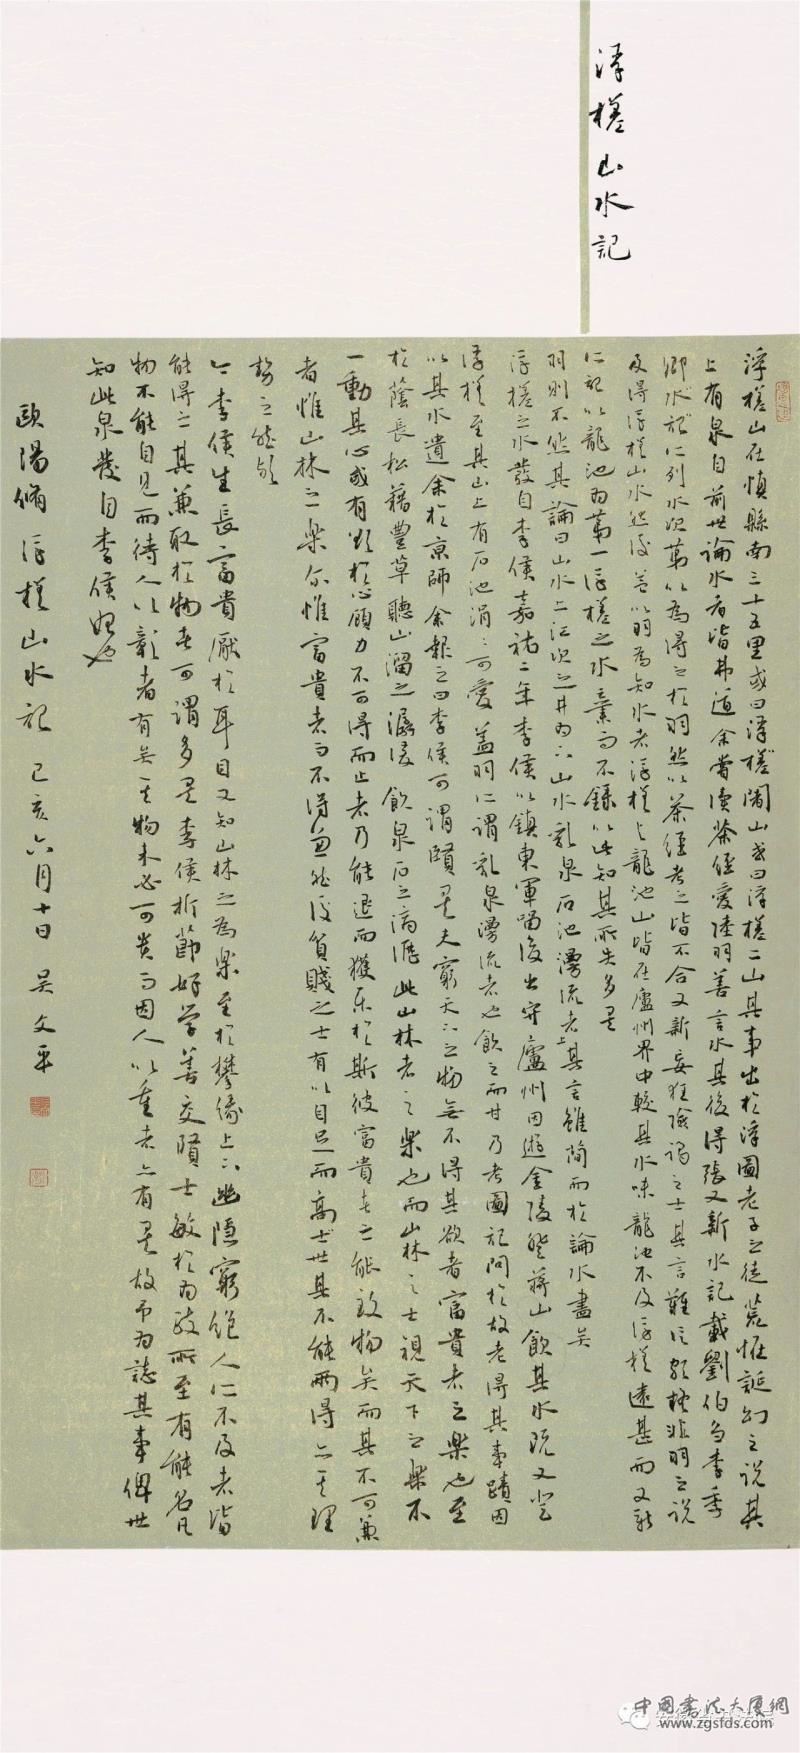 浮槎山水記
浮槎山在慎縣南三十五里或曰浮槎闍山或曰浮槎二山其事出於浮圖老子之徒荒怪誕幻之說其
上有泉自前世論水者皆弗道余嘗讀茶經愛陸羽善言水其後得張又新水記載劉伯芻李季
卿水記所列水次第以為得之於羽然以茶經考之皆不合又新妄狂險譎之士其言難信頗疑非羽之說
及得浮槎山水然後益以羽為知水者浮槎與龍池山皆在廬州界中較其水味龍池不及浮槎遠甚而又新
所記以龍池為第一浮槎之水棄而不錄以此知其所失多矣
羽則不然其論曰山水上江次之井為下山水乳泉石池漫流者上其言雖簡而於論水盡矣
浮槎之水發自李侯嘉祐二年李侯以鎮東軍留後出守廬州因遊金陵登蔣山飲其水既又登
浮槎至其山上有石池涓涓可愛蓋羽所謂乳泉漫流者也飲之而甘乃考圖記問於故老得其事蹟因
以其水遺余於京師余報之曰李侯可謂賢矣夫窮天下之物無不得其欲者富貴者之樂也至
於蔭長松藉豐草聽山溜之潺湲飲泉石之滴瀝此山林者之樂也而山林之士視天下之樂不
一動其心或有欲於心顧力不可得而止者乃能退而獲樂於斯彼富貴者之能致物矣而其不可兼
者惟山林之樂爾惟富貴者而不得兼然後貧賤之士有以自足而高世其不能兩得亦其理
勢之然歟
今李侯生長富貴厭於耳目又知山林之為樂至於攀緣上下幽隱窮絕人所不及者皆
能得之其兼取於物者可謂多矣李侯折節好學善交賢士敏於為政所至有能名凡
物不能自見而待人以彰者有矣其物未必可貴而因人以重者亦有矣故予為誌其事俾世
知此泉發自李侯始也
歐陽脩浮槎山水記 己亥六月十日 吴文平
中國書法大厦網
www.zgsfds.com